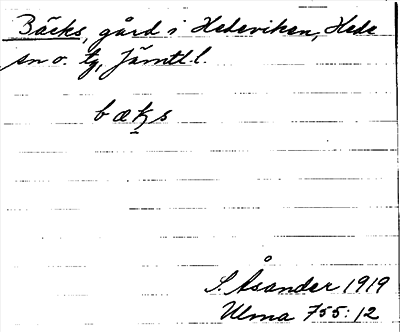 Bäcks, gård i Hedeviken, Hede
sn o. tg, Jämtl. l.
bæks
S. Åsander 1919
Ulma 755:12